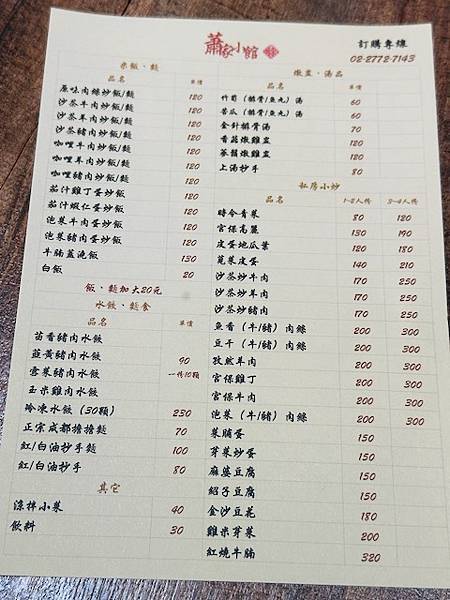 蕭家小館
訂購專線
02-2772-7143
米飯、麵
品名 單價
原味肉絲炒飯/麵 120
沙茶牛肉炒飯/麵 120
沙茶羊肉炒飯/麵 120
沙茶豬肉炒飯/麵 120
咖哩牛肉炒飯/麵 120
咖哩羊肉炒飯/麵 120
咖哩豬肉炒飯/麵 120
茄汁雞丁蛋炒飯 120
茄汁蝦仁蛋炒飯 120
泡菜牛肉蛋炒飯 120
泡菜豬肉蛋炒飯 120
牛腩蓋澆飯 130
白飯 20
飯、麵加大20元
水餃、麵食
品名 單價
茴香豬肉水餃
韮黃豬肉水餃 90
雪菜豬肉水餃 一份10顆
玉米雞肉水餃
冷凍水餃(30顆) 230
正宗成都擔擔麵 70
紅/白油抄手麵 100
紅/白油抄手 80
其它
涼拌小菜 40
飲料 30
燉盅、湯品
品名 單價
竹筍(排骨/魚丸)湯 60
苦瓜(排骨/魚丸)湯 60
金針排骨湯 70
香菇燉雞盅 120
蔘鬚燉雞盅 120
上湯抄手 80
私房小炒
品名 1-2人份 3-4人份
時令青菜 80 120
宮保高麗 130 190
皮蛋地瓜葉 120 180
莧菜皮蛋 140 210
沙茶炒牛肉 170 250
沙茶炒羊肉 170 250
沙茶炒豬肉 170 250
魚香(牛/豬)肉絲 200 300
豆干(牛/豬)肉絲 200 300
孜然羊肉 200 300
宮保雞丁 200 300
宮保牛肉 200 300
泡菜(牛/豬)肉絲 200 300
菜脯蛋 150
芽菜炒蛋 150
麻婆豆腐 150
紹子豆腐 150
金沙豆花 180
雞米芽菜 200
紅燒牛腩 320